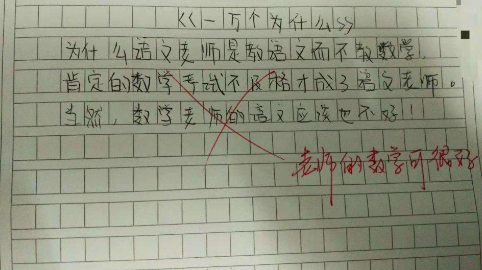 《一万个为什么》
为什么语文老师是教语文而不教数学,
肯定的数学考试不及格才成了语文老师。
当然,数学老师的语文应该也不好!!
老师的数学可很好